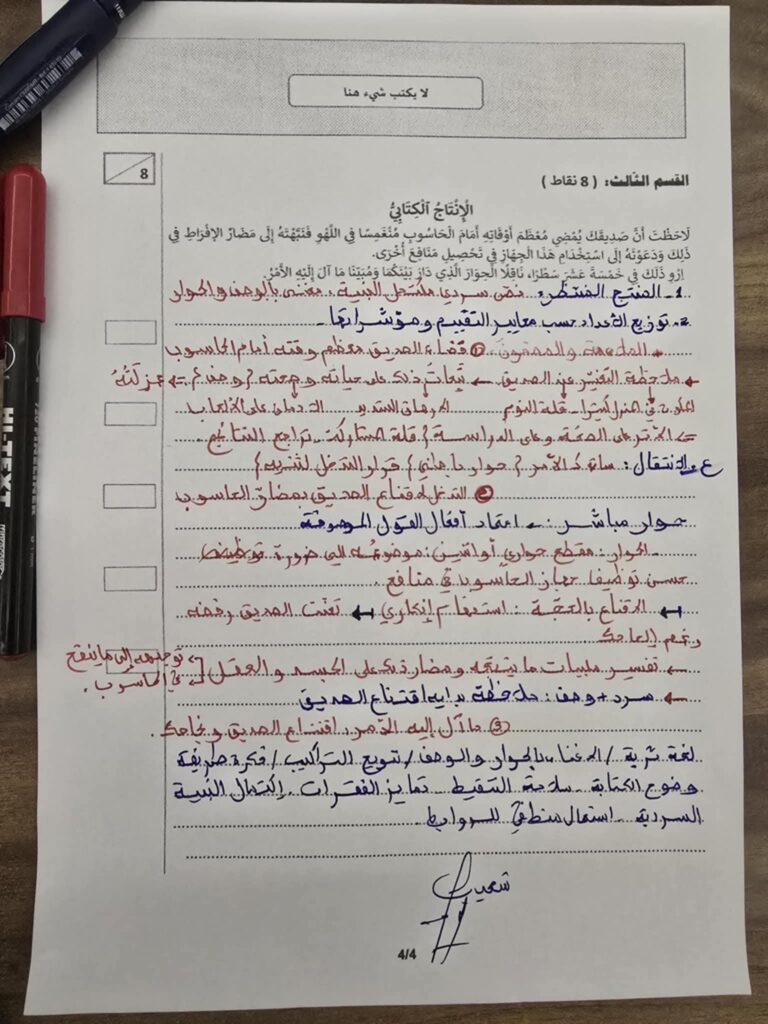 لا يكتب شيء هنا
8
القسم الثالث: ( 8 نقاط )
الْإِنْتَاجُ الْكِتَابِيُّ
لَاحَظْتَ أَنَّ صَدِيقَكَ يُمْضِي مُعْظَمَ أَوْقَاتِهِ أَمَامَ الْحَاسُوبِ مُنْغَمِسًا فِي اللَّهْوِ فَنَبَّهْتَهُ إِلَى مَضَارِّ الإِفْرَاطِ فِي
ذَلِكَ وَدَعَوْتَهُ إِلَى اسْتِخْدَامِ هَذَا الْجِهَازِ فِي تَحْصِيلِ مَنَافِعَ أُخْرَى.
اِرْوِ ذَلِكَ فِي خَمْسَةَ عَشَرَ سَطْرًا، نَاقِلًا الْحِوَارَ الَّذِي دَارَ بَيْنَكُمَا وَمُبَيِّنًا مَا آلَ إِلَيْهِ الأَمْرُ.
1- المنتج المنتظر: نصّ سردي مكتمل البنية، مغتني بالوصف والحوار
2- توزيع الأعداد حسب معايير التقييم ومؤشراتها.
الملاءمة والمقروئية ① قضاء الصديق معظم وقته أمام الحاسوب
← ملاحظة التغيّر عن الصديق ← تبعات ذلك على حياته وصحته / وصف / ← عزلتُهُ
في المنزل كثيرا - قلة النوم الإرهاق الشديد الإدمان على الألعاب
← الأثر على الصحة وعلى الدراسة / قلة المشاركة - تراجع النتائج.
الانتقال: ساءك الأمر / حوار باطني / قرار التدخل لتنبيهه /
② التدخل لإقناع الصديق بمضارّ الحاسوب
حوار مباشر: ← اعتماد أفعال القول الموصوفة
- الحوار: مقطع حواري أو اثنين: موضوعه إلى ضرورة توظيف
حسن توظيف جهاز الحاسوب في منافع.
← الإقناع بالحجّة: استفهام إنكاري ← تعنّت الصديق رفضه
رغم إلحاحك
← تفسير سلبيات ما يتبعه ومضار ذلك على الجسد والعقل
توجيهه إلى ما ينفع
في الحاسوب.
← سرد + وصف: ملاحظة بداية اقتناع الصديق
③ ما آل إليه الأمر: اقتناع الصديق ونجاحك.
لغة ثرية / الاغتناء بالحوار والوصف / تنويع التراكيب / فكرة طريفة
وضوح الكتابة - سلامة التنقيط - تمايز الفقرات - اكتمال البنية
السردية - استعمال منطقيّ للروابط.
شعيب
4/4
HI-TEXT